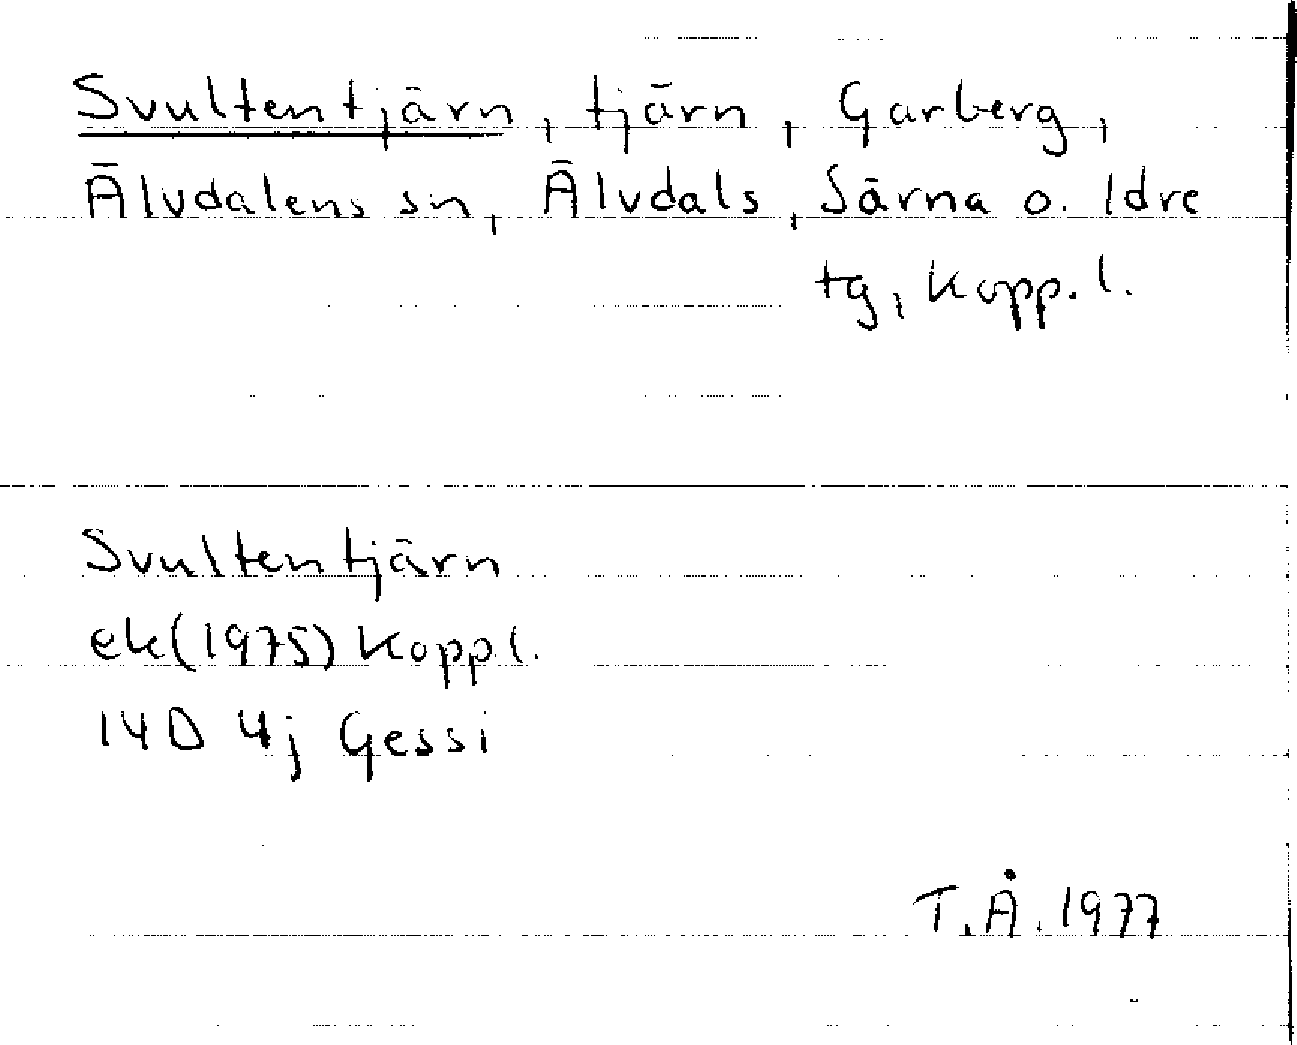 Svultentjärn, tjärn, Garberg,
Älvdalens sn, Älvdals, Särna o. Idre
tg, Kopp. l.
Svultentjärn
ek(1975) Kopp l.
14D 4j Gessi
T.Å. 1977